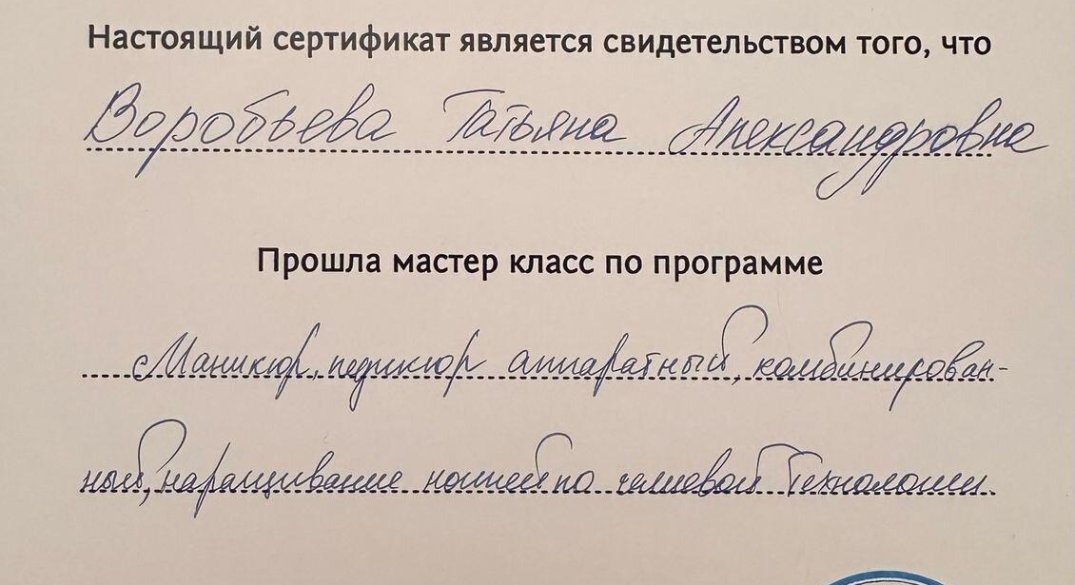 Настоящий сертификат является свидетельством того, что
Воробьева Татьяна Александровна
Прошла мастер класс по программе
Маникюр, педикюр аппаратный, комбинирован-
ный, наращивание ногтей по гелиевой Технологии